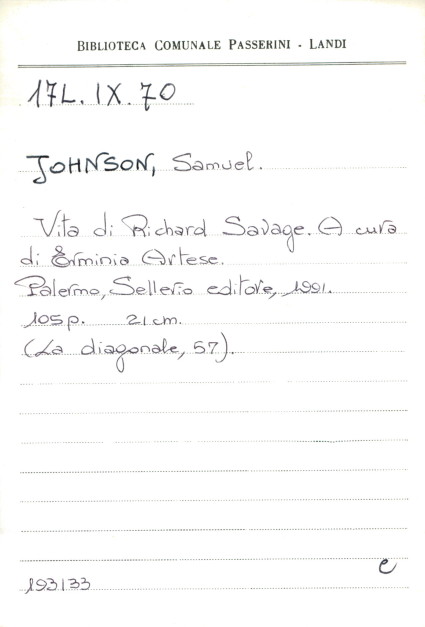 BIBLIOTECA COMUNALE PASSERINI - LANDI
17L.IX.70
JOHNSON, Samuel.
Vita di Richard Savage. A cura
di Erminia Artese.
Palermo, Sellerio editore, 1991.
105 p. 21 cm.
(La diagonale, 57).
e
193133